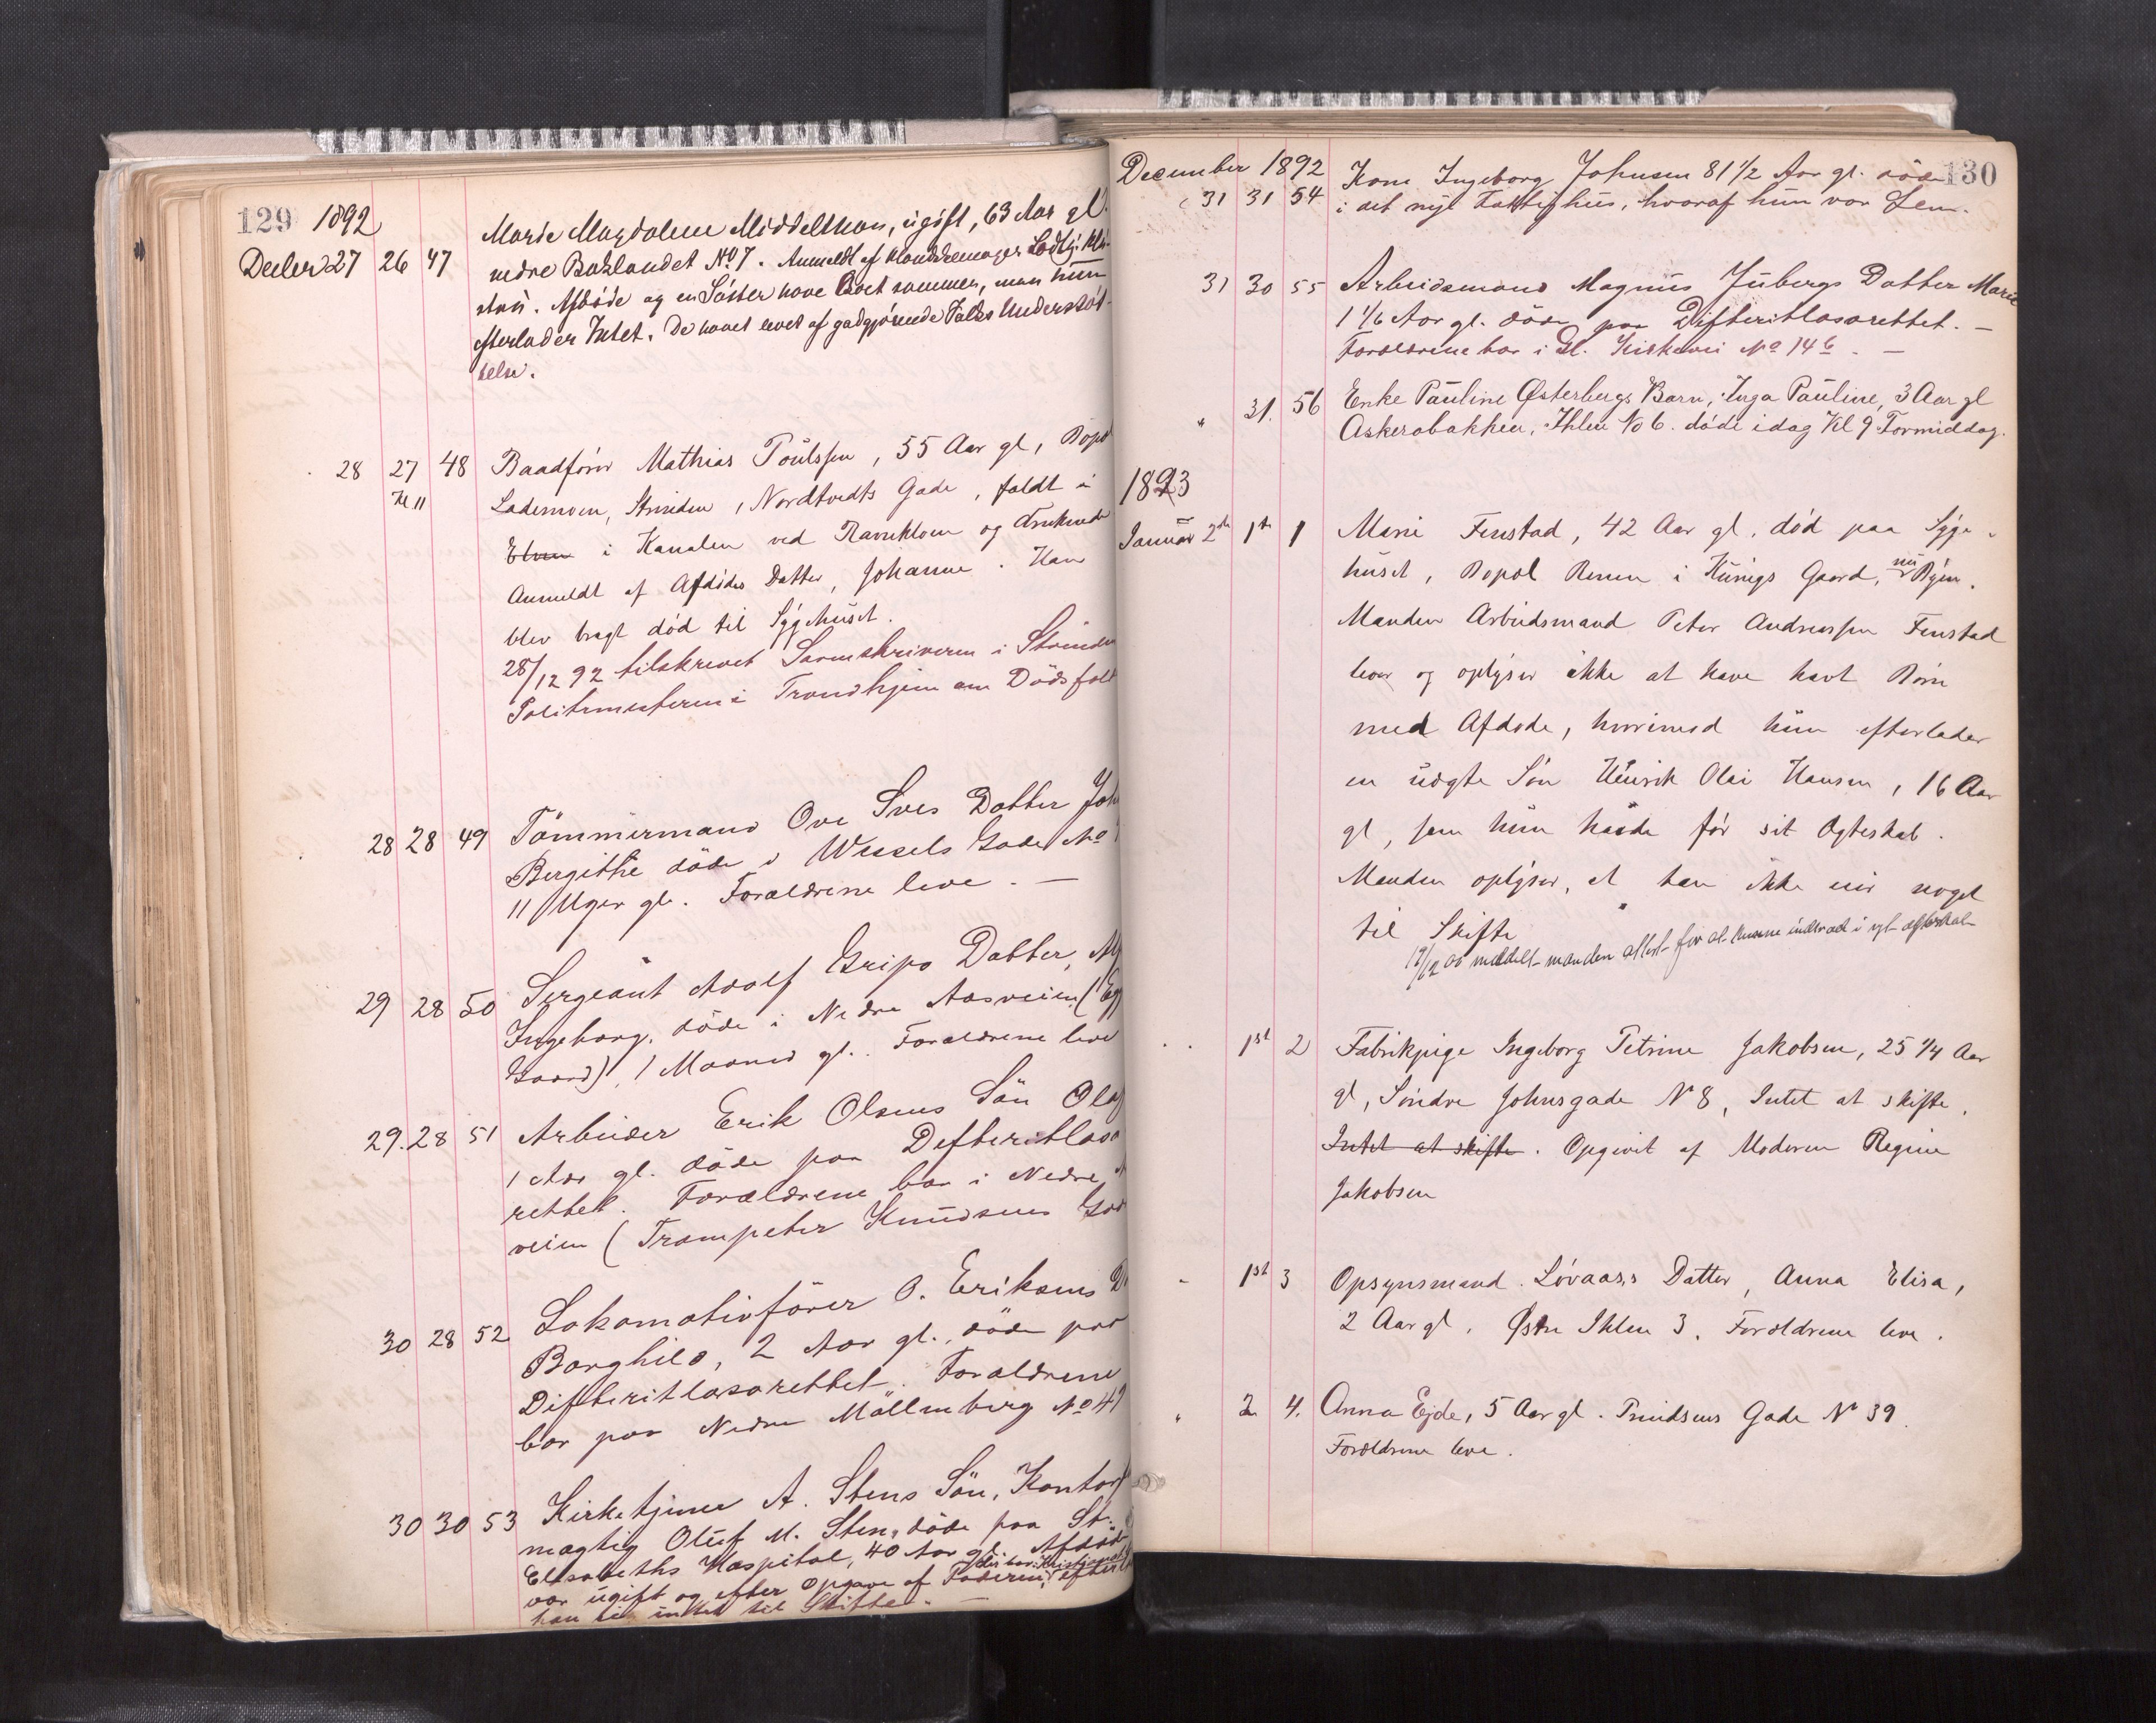 129 1892
Decbr 27 26 47 Marie Magdalene Middelthon, ugift, 63 Aar gl.
nedre Baklandet No 7. Anmeldt af
Afdøde og en Søster have levet sammen, men hun
efterlader Intet. De havet levet af godgjørende Folks Understøt-
telse.
28 27 48 Baadfører Mathias Poulssen, 55 Aar gl, Bopæl
Kl 11 Lademoen, Strinden, Nordtvedts Gade, faldt i
Elven i Kanalen ved Ravnkloen og druknede
Anmeldt af Afdødes Datter, Johanne. Han
blev bragt død til Sygehuset.
28/12 92 tilskrevet Sorenskriveren i Strinden
Politimesteren i Trondhjem om Dødsfald
28 28 49 Tömmermand Ove Sves Datter Joh
Bergithe döde i Wessels Gade No
11 Uger gl. Forældrene leve. —
29 28 50 Sergeant Adolf Grips Datter,
Ingeborg, döde i Nedre Aasveien (
Gaard), 1 Maaned gl. Forældrene leve
29. 28 51 Arbeider Erik Olsens Sön Olaf
1 Aar gl. döde paa Defteritlasa
rettet. Forældrene bor i Nedre
veien (Trompeter Knudsens Gaar
30 28 52 Lokomotivförer O. Eriksens D
Borghild, 2 Aar gl., döde paa
Difteritlasarettet. Forældrene
bor paa Nedre Möllenberg No 41
30 30 53 Kirketjener A. Stens Sön, Kontorf
mægtig Oluf M. Sten, döde paa St.
Elisabeths Hospital, 40 Aar gl. Afdöde
var ugift og efter Opgave af Faderen, efterl
han sig intet til Skifte. —
130
December 1892
31 31 54 Kone Ingeborg Johnsen 81 1/2 Aar gl. döde
i det nye Fattighus, hvoraf hun var Lem.
31 30 55 Arbeidsmand Magnus Jubergs Datter Marie
1 1/6 Aar gl. döde paa Difteritlasarettet. —
Forældrene bor i Gl. Kirkevei No 14 b. —
" 31. 56 Enke Pauline Østerbergs Barn, Inga Pauline, 3 Aar gl
Askerabakken, Ihlen No 6. døde idag Kl 9 Formiddag.
1893
Januar 2den 1ste 1 Marie Fenstad, 42 Aar gl. død paa Syge-
huset, Bopæl Renen i Kunigs Gaard, nu Byen.
Manden Arbeidsmand Peter Andreassen Fenstad
lever og oplyser ikke at have havt Børn
med Afdøde, hvorimod hun efterlader
en uægte Søn Henrik Olai Hansen, 16 Aar
gl, som hun havde før sit Ægteskab.
Manden oplyser, at han ikke eier noget
til Skifte
19/12 00 meddelt manden attest for at kunne indtræde i nyt ægteskab
1st 2 Fabrikpige Ingeborg Petrine Jakobsen, 25 1/4 Aar
gl, Søndre Johnsgade N 8, Intet at skifte.
Intet at skifte. Opgivet af Moderen Regine
Jakobsen
1st 3 Opsynsmand Løvaas's Datter, Anna Elisa,
2 Aar gl, Østre Ihlen 3. Forældrene leve.
" 2 4. Anna Ejde, 5 Aar gl. Gade N 39.
Forældrene leve.